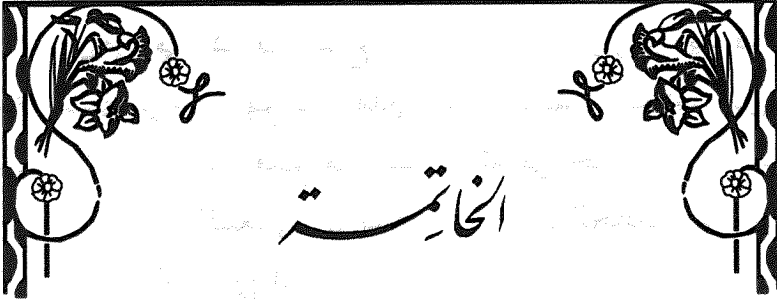 الخاتِمة